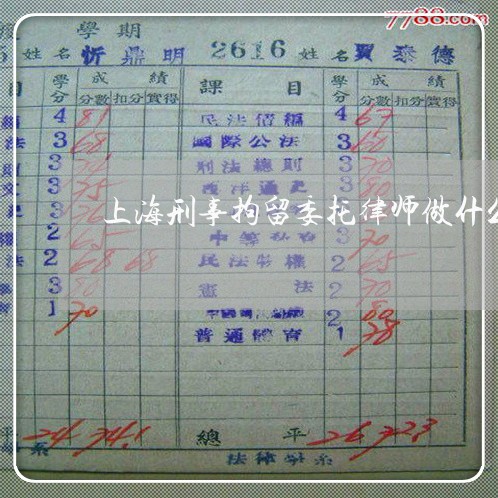 7788.com
學期
姓名 忻鼎明 2616 姓名 賈泰德
目 學分 成績 課目 學分 成績
分數 扣分 實得 分數 扣分 實得
4 81 民法債編 4 67
法 3 68 國際公法 3 60
3 刑法總則 3 70
3 75 西洋通史 3 80
上海刑事拘留委托律师做什么
2 65 3 70
法 2 68 68 民法物權 2 65
3 80 憲法 2 70
1 70 2 80
普通體育 1 78
平 24 74.1 總平 26 72.3
系 法律學系